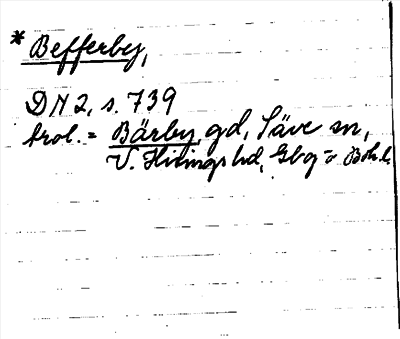 * Befferby,
DN 2, s. 739
trol. = Bärby, gd, Säve sn,
V. Hisings hd, Gbg o Boh. l.